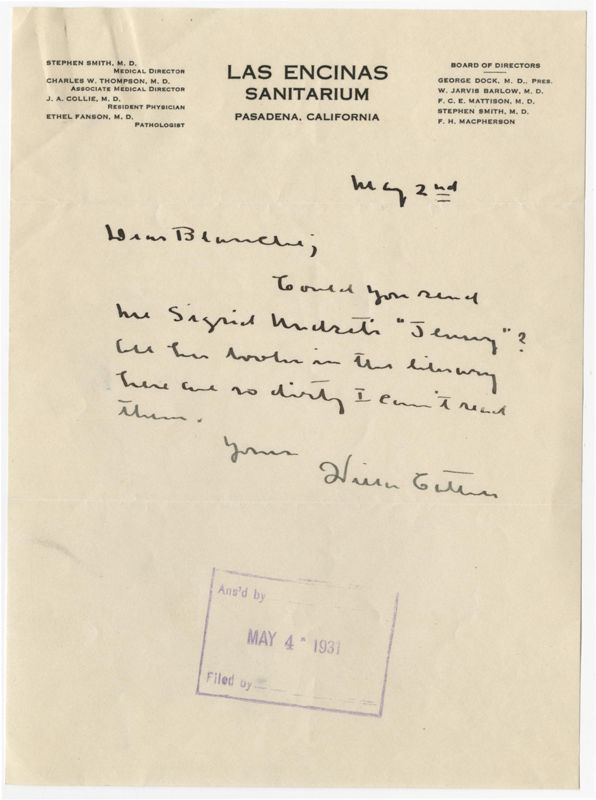 STEPHEN SMITH, M. D.
MEDICAL DIRECTOR
CHARLES W. THOMPSON, M. D.
ASSOCIATE MEDICAL DIRECTOR
J. A. COLLIE, M. D.
RESIDENT PHYSICIAN
ETHEL FANSON, M. D.
PATHOLOGIST
LAS ENCINAS
SANITARIUM
PASADENA, CALIFORNIA
BOARD OF DIRECTORS
GEORGE DOCK, M. D., PRES.
W. JARVIS BARLOW, M. D.
F. C. E. MATTISON, M. D.
STEPHEN SMITH, M. D.
F. H. MACPHERSON
May 2nd
Dear Blanche;
Could you send
me Sigrid Undset's "Jenny"?
All her books in the library
here are so dirty I can't read
them.
Yours
Willa Cather
Ans'd by
MAY 4 - 1931
Filed by